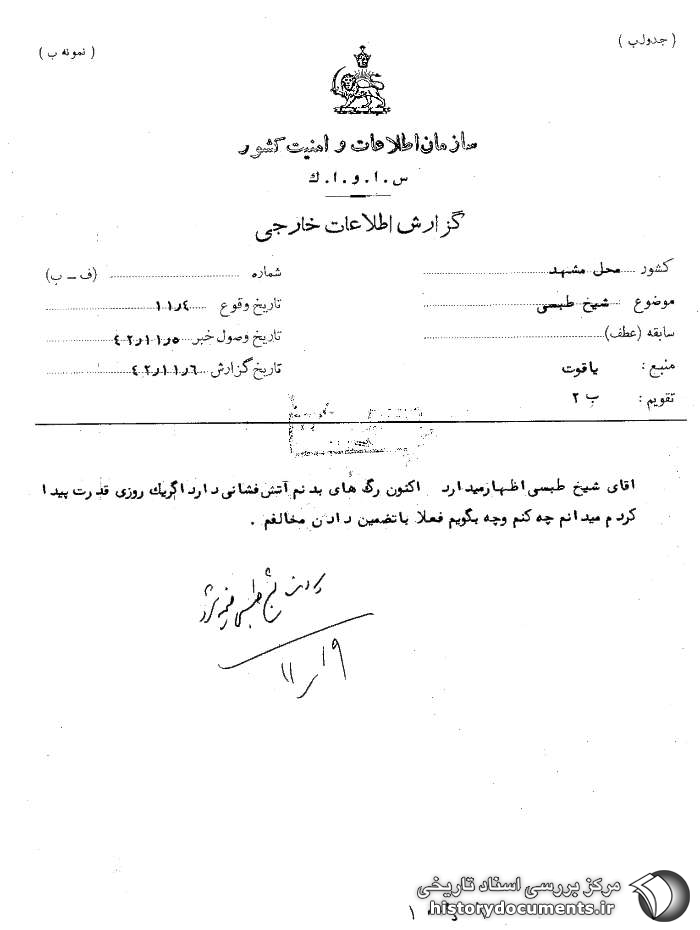 ( جدول ب )
( نمونه ب )
سازمان اطلاعات و امنیت کشور
س . ا . و . ا . ك
گزارش اطلاعات خارجی
کشور محل مشهد
موضوع شیخ طبسی
سابقه (عطف)
منبع : یاقوت
تقویم : ب ۲
شماره (ف ــ ب)
تاریخ وقوع ۱۱٫۴
تاریخ وصول خبر ۴۲٫۱۱٫۵
تاریخ گزارش ۴۲٫۱۱٫۶
اقای شیخ طبسی اظهار میدارد اکنون رگ های بدنم آتش فشانی دارد اگریك روزی قدرت پیدا
کردم میدانم چه کنم وچه بگویم فعلا باتضمین دادن مخالفم .
شیخ طبسی
۱۱٫۱۹
مرکز بررسی اسناد تاریخی
historydocuments.ir
۱